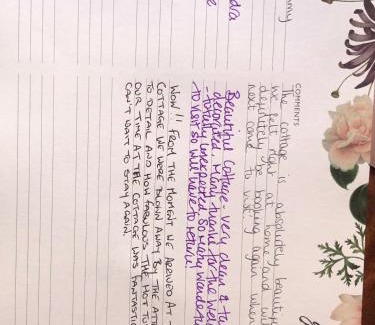 mmy
COMMENTS
The cottage is absolutely beautiful
we felt right at home and will
definitely be booking again when
next come to visit!
dra
e
Beautiful cottage, very clean &
decorated. Many thanks for the wel
- totally unexpected. So many wonderful
to visit so will have to return!
WOW!! FROM THE MOMENT WE ARRIVED AT
COTTAGE WE WERE BLOWN AWAY BY THE ATT
TO DETAIL AND HOW FABULOUS THE HOT TU
OUR TIME AT THE COTTAGE WAS FANTASTIC
CAN'T WAIT TO STAY AGAIN.